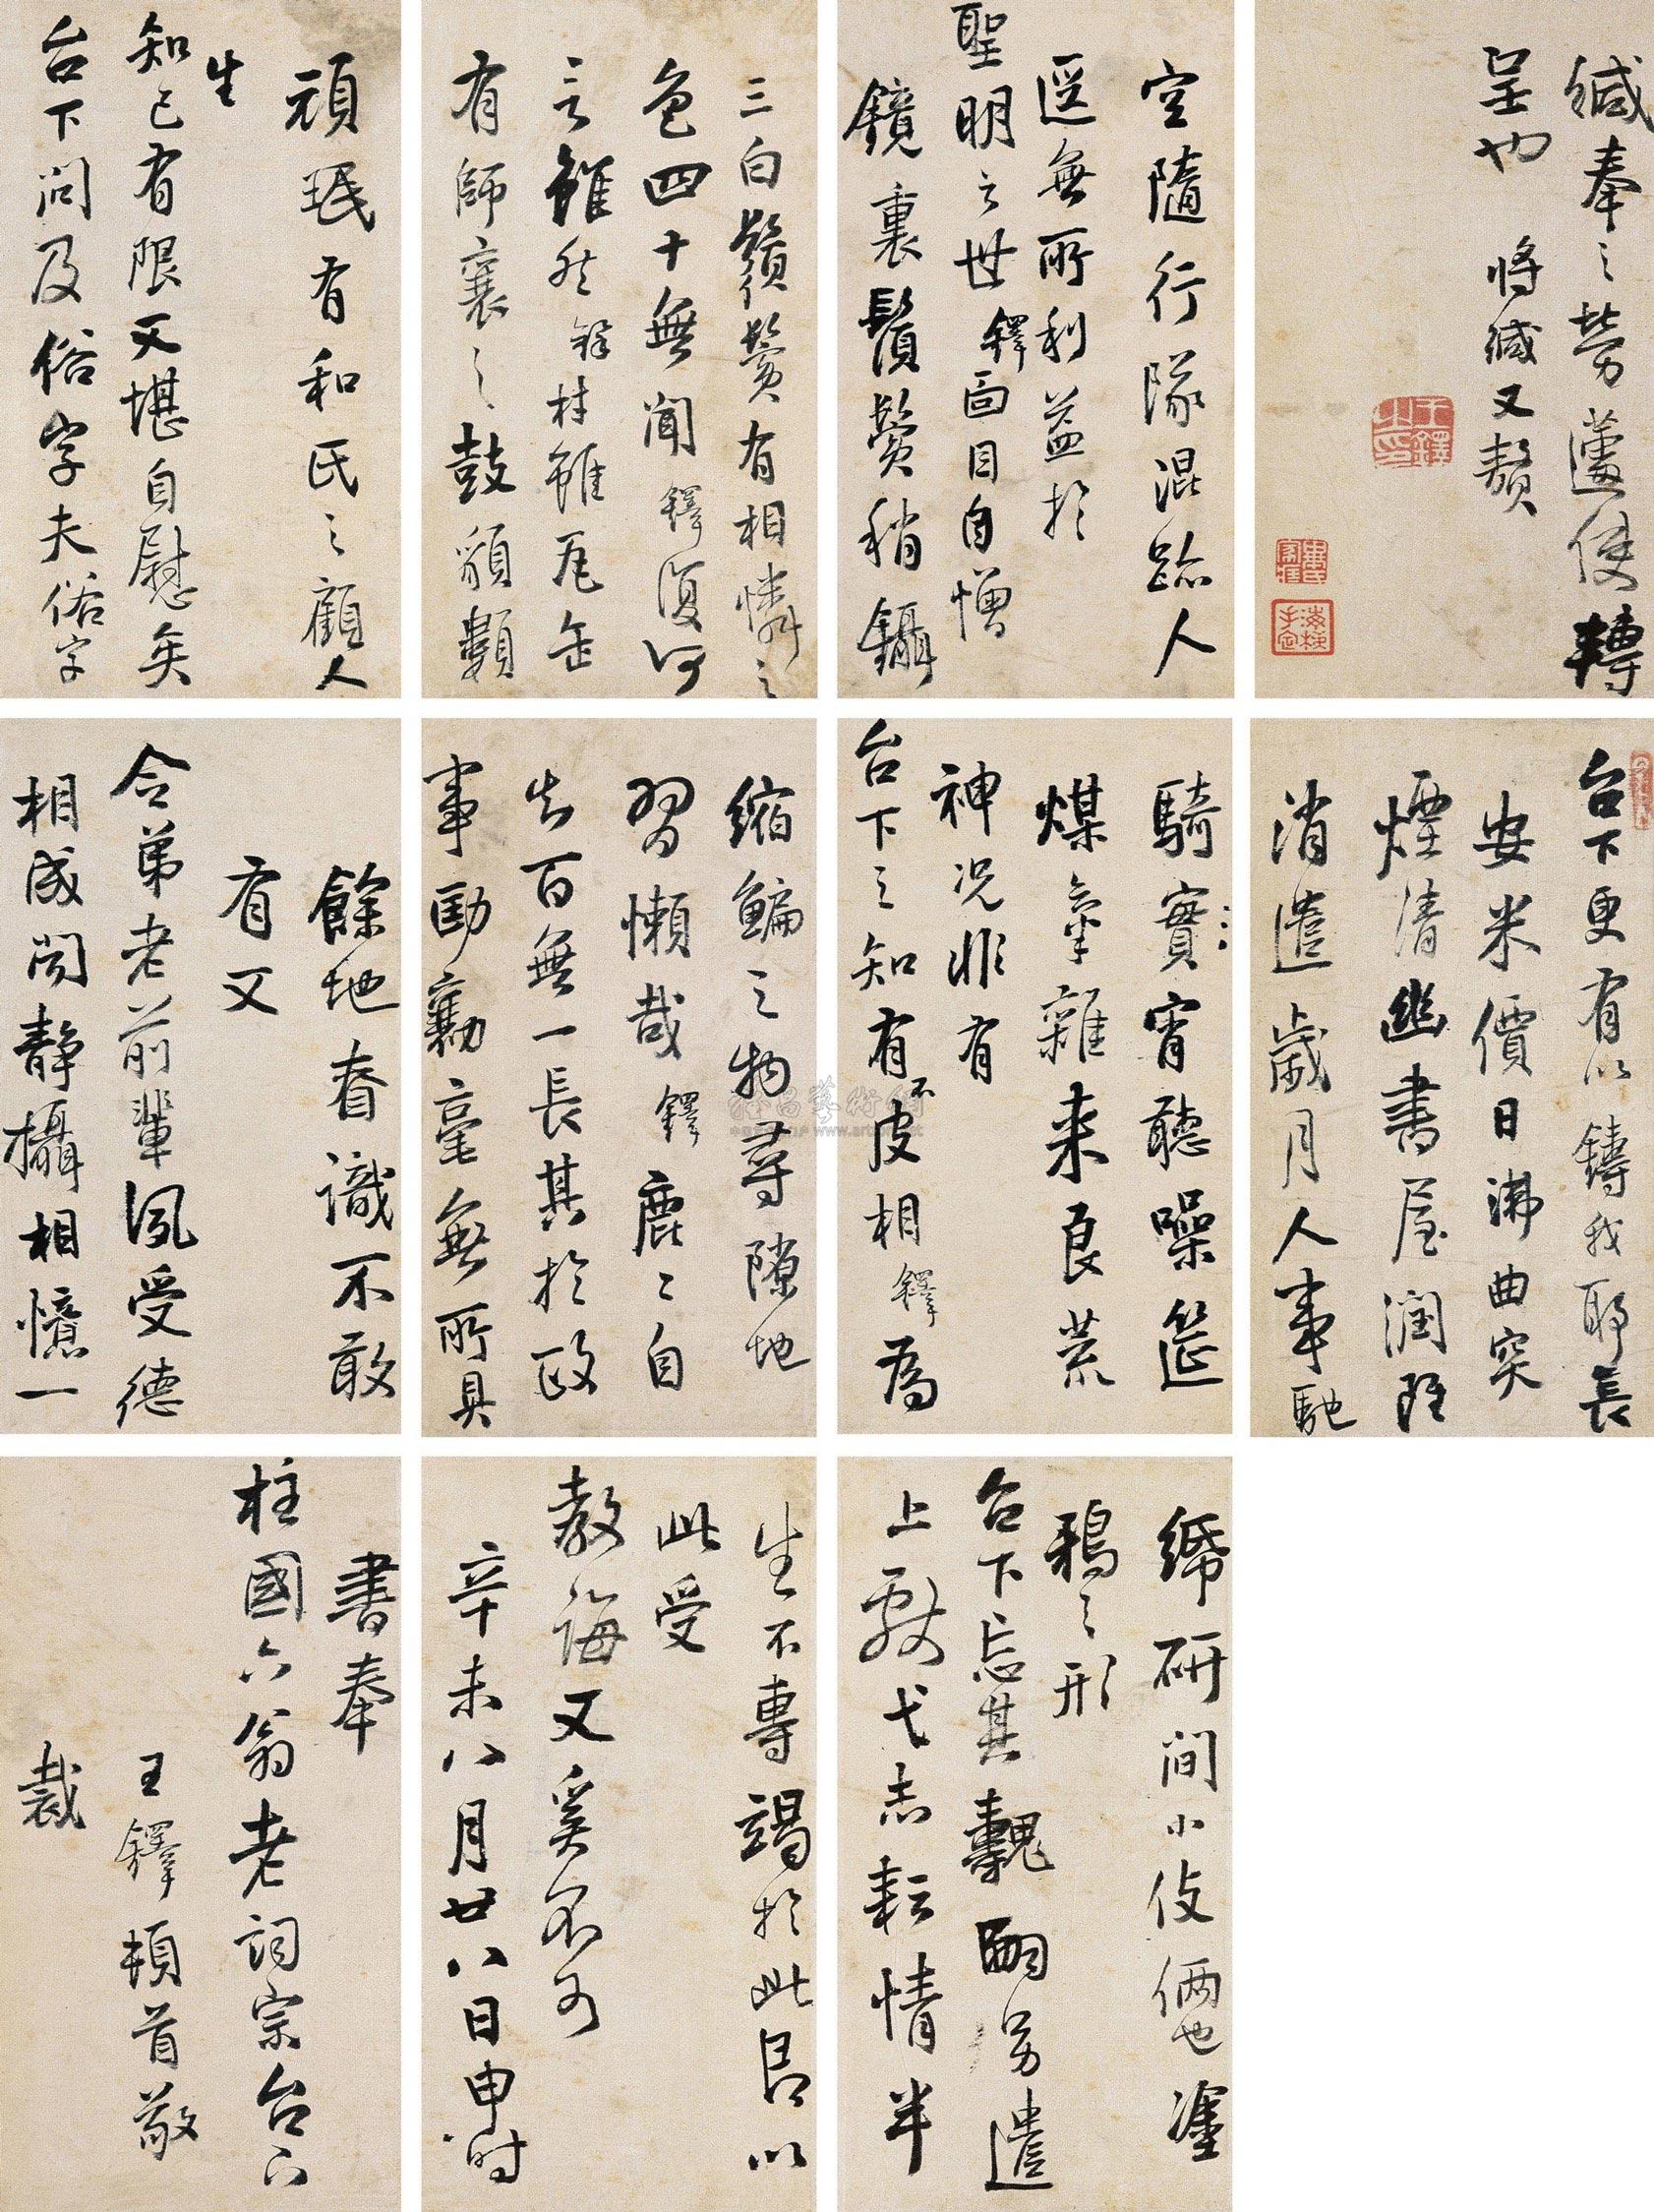 緘奉之勞蘧使轉
呈也 將緘又贅
王鐸之印
空隨行隊混跡人
逕無所利益於
聖明之世鐸面目自憎
鏡裏鬚鬢稍鑷
三白鬚鬢有相憐之
色四十無聞鐸復何
言雖然鐸材雖瓦缶
有師襄之鼓
頑珉有和氏之顧人
生
知己有限又堪自慰矣
台下問及俗字夫俗字
台下更有以鑄我耶長
安米價日沸曲突
煙清幽書屋潤
消遣歲月人事馳
騎賓宵聽噪筵
煤氣雜来良荒
神况非有
台下之知有不皮相鐸為
縮鯿之物尋隙地
習懶哉鐸鹿〻自
失百無一長其於政
事勷毫無所具
餘地看識不敢
有又
令弟老前輩夙受德
相成閒靜攝相憶一
研間小伎倆也塗
鴉之形
台下忘其醜嗣另遣
上弋志耘情半
生不專竭於此良以
此受
教誨又奚不可
辛未八月廿八日申時
書奉
柱國六翁老詞宗台下
王鐸頓首敬
裁